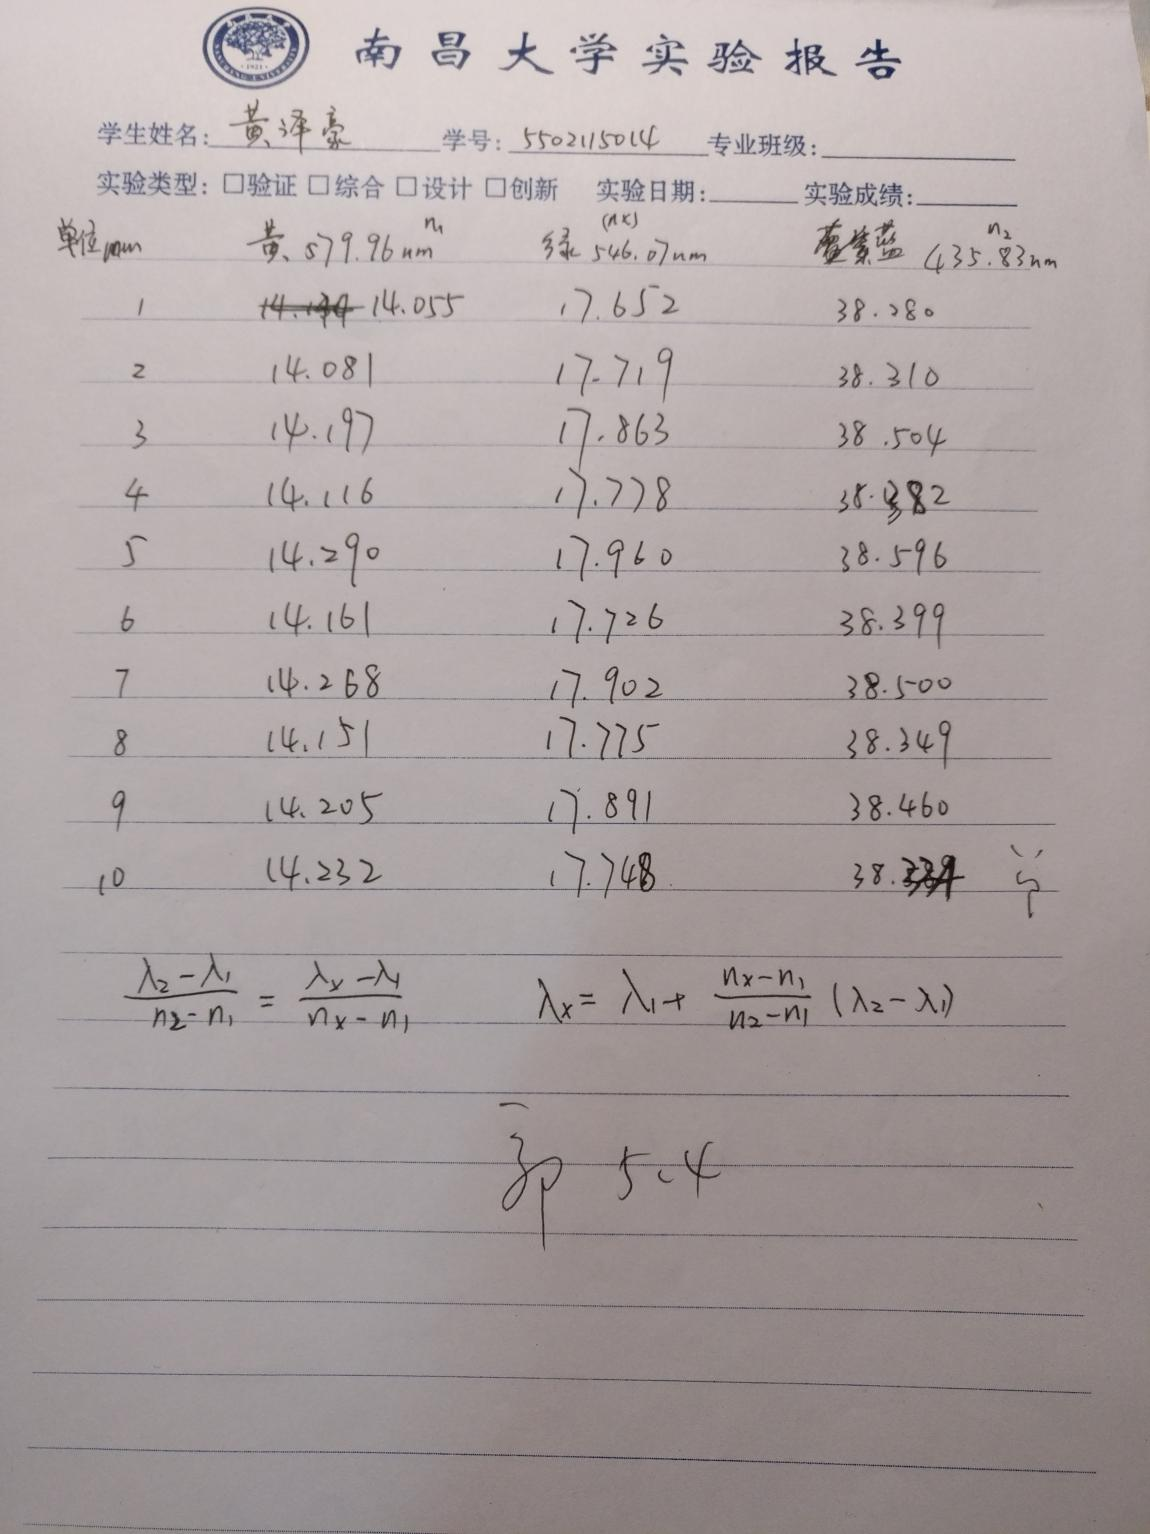 南昌大学实验报告
学生姓名: 黄泽豪 学号: 5502115014 专业班级:
实验类型: □验证 □综合 □设计 □创新 实验日期: 实验成绩:
单位mm 黄 579.96nm n₁ 绿 546.07nm (nx) 蓝 435.83nm n₂
1 14.055 17.652 38.280
2 14.081 17.719 38.310
3 14.197 17.863 38.504
4 14.116 17.778 38.382
5 14.290 17.960 38.596
6 14.161 17.726 38.399
7 14.268 17.902 38.500
8 14.151 17.775 38.349
9 14.205 17.891 38.460
10 14.232 17.748 38.
(λ₂-λ₁)/(n₂-n₁) = (λx-λ₁)/(nx-n₁) λx = λ₁ + (nx-n₁)/(n₂-n₁) (λ₂-λ₁)
5.4